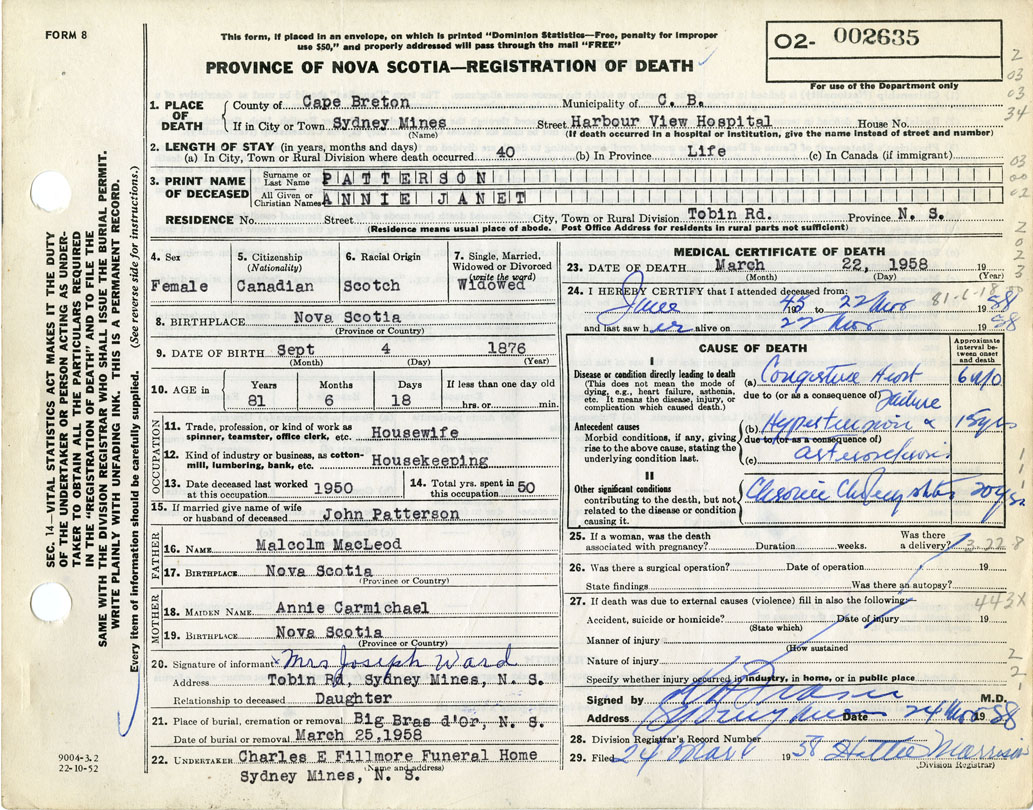 FORM 8
This form, if placed in an envelope, on which is printed "Dominion Statistics—Free, penalty for improper
use $50," and properly addressed will pass through the mail "FREE"
PROVINCE OF NOVA SCOTIA—REGISTRATION OF DEATH
02- 002635
For use of the Department only
1. PLACE OF DEATH County of Cape Breton Municipality of C. B.
If in City or Town Sydney Mines Street Harbour View Hospital House No.
(Name) (If death occurred in a hospital or institution, give the name instead of street and number)
2. LENGTH OF STAY (in years, months and days)
(a) In City, Town or Rural Division where death occurred 40 (b) In Province Life (c) In Canada (if immigrant)
3. PRINT NAME OF DECEASED Surname or Last Name PATTERSON
All Given or Christian Names ANNIE JANET
RESIDENCE No. Street City, Town or Rural Division Tobin Rd. Province N. S.
(Residence means usual place of abode. Post Office Address for residents in rural parts not sufficient)
4. Sex 5. Citizenship (Nationality) 6. Racial Origin 7. Single, Married, Widowed or Divorced (write the word)
Female Canadian Scotch Widowed
8. BIRTHPLACE Nova Scotia
(Province or Country)
9. DATE OF BIRTH Sept 4 1876
(Month) (Day) (Year)
10. AGE in Years Months Days If less than one day old
81 6 18 hrs. or min.
OCCUPATION
11. Trade, profession, or kind of work as
spinner, teamster, office clerk, etc. Housewife
12. Kind of industry or business, as cotton-
mill, lumbering, bank, etc. Housekeeping
13. Date deceased last worked at this occupation 1950 14. Total yrs. spent in this occupation 50
15. If married give name of wife
or husband of deceased John Patterson
FATHER
16. NAME Malcolm MacLeod
17. BIRTHPLACE Nova Scotia
(Province or Country)
MOTHER
18. MAIDEN NAME Annie Carmichael
19. BIRTHPLACE Nova Scotia
(Province or Country)
20. Signature of informant x Mrs Joseph Ward
Address Tobin Rd, Sydney Mines, N. S.
Relationship to deceased Daughter
21. Place of burial, cremation or removal Big Bras d'Or, N. S.
Date of burial or removal March 25,1958
22. UNDERTAKER Charles E Fillmore Funeral Home
(Name and address)
Sydney Mines, N. S.
MEDICAL CERTIFICATE OF DEATH
23. DATE OF DEATH March 22, 1958 19
(Month) (Day) (Year)
24. I HEREBY CERTIFY that I attended deceased from: 81-6-18
June 1945 to 22 Mar 1958
and last saw her alive on 22 Mar 1958
CAUSE OF DEATH
Approximate interval between onset and death
I
Disease or condition directly leading to death
(This does not mean the mode of
dying, e.g., heart failure, asthenia,
etc. It means the disease, injury, or
complication which caused death.)
(a) Congestive Heart 6
due to (or as a consequence of) failure
Antecedent causes
Morbid conditions, if any, giving
rise to the above cause, stating the
underlying condition last.
(b) Hypertension & 15 yrs
due to (or as a consequence of)
(c)
II
Other significant conditions
contributing to the death, but not
related to the disease or condition
causing it.
Chronic 20 yrs
25. If a woman, was the death associated with pregnancy? Duration weeks. Was there a delivery? 3.22.8
26. Was there a surgical operation? Date of operation 19
State findings Was there an autopsy?
27. If death was due to external causes (violence) fill in also the following: 443X
Accident, suicide or homicide? Date of injury 19
(State which)
Manner of injury
(How sustained
Nature of injury
Specify whether injury occurred in industry, in home, or in public place
Signed by M.D.
Address Sydney Mines Date 24 Mar 1958
28. Division Registrar's Record Number
29. Filed 24 Mar 1958 Hattie Morrison
(Division Registrar)
SEC. 14—VITAL STATISTICS ACT MAKES IT THE DUTY
OF THE UNDERTAKER OR PERSON ACTING AS UNDER-
TAKER TO OBTAIN ALL THE PARTICULARS REQUIRED
IN THE "REGISTRATION OF DEATH" AND TO FILE THE
SAME WITH THE DIVISION REGISTRAR WHO SHALL ISSUE THE BURIAL PERMIT.
WRITE PLAINLY WITH UNFADING INK. THIS IS A PERMANENT RECORD.
Every item of information should be carefully supplied. (See reverse side for instructions.)
9004-3.2
22-10-52
2
03
03
34
03
00
02
2
0
2
3